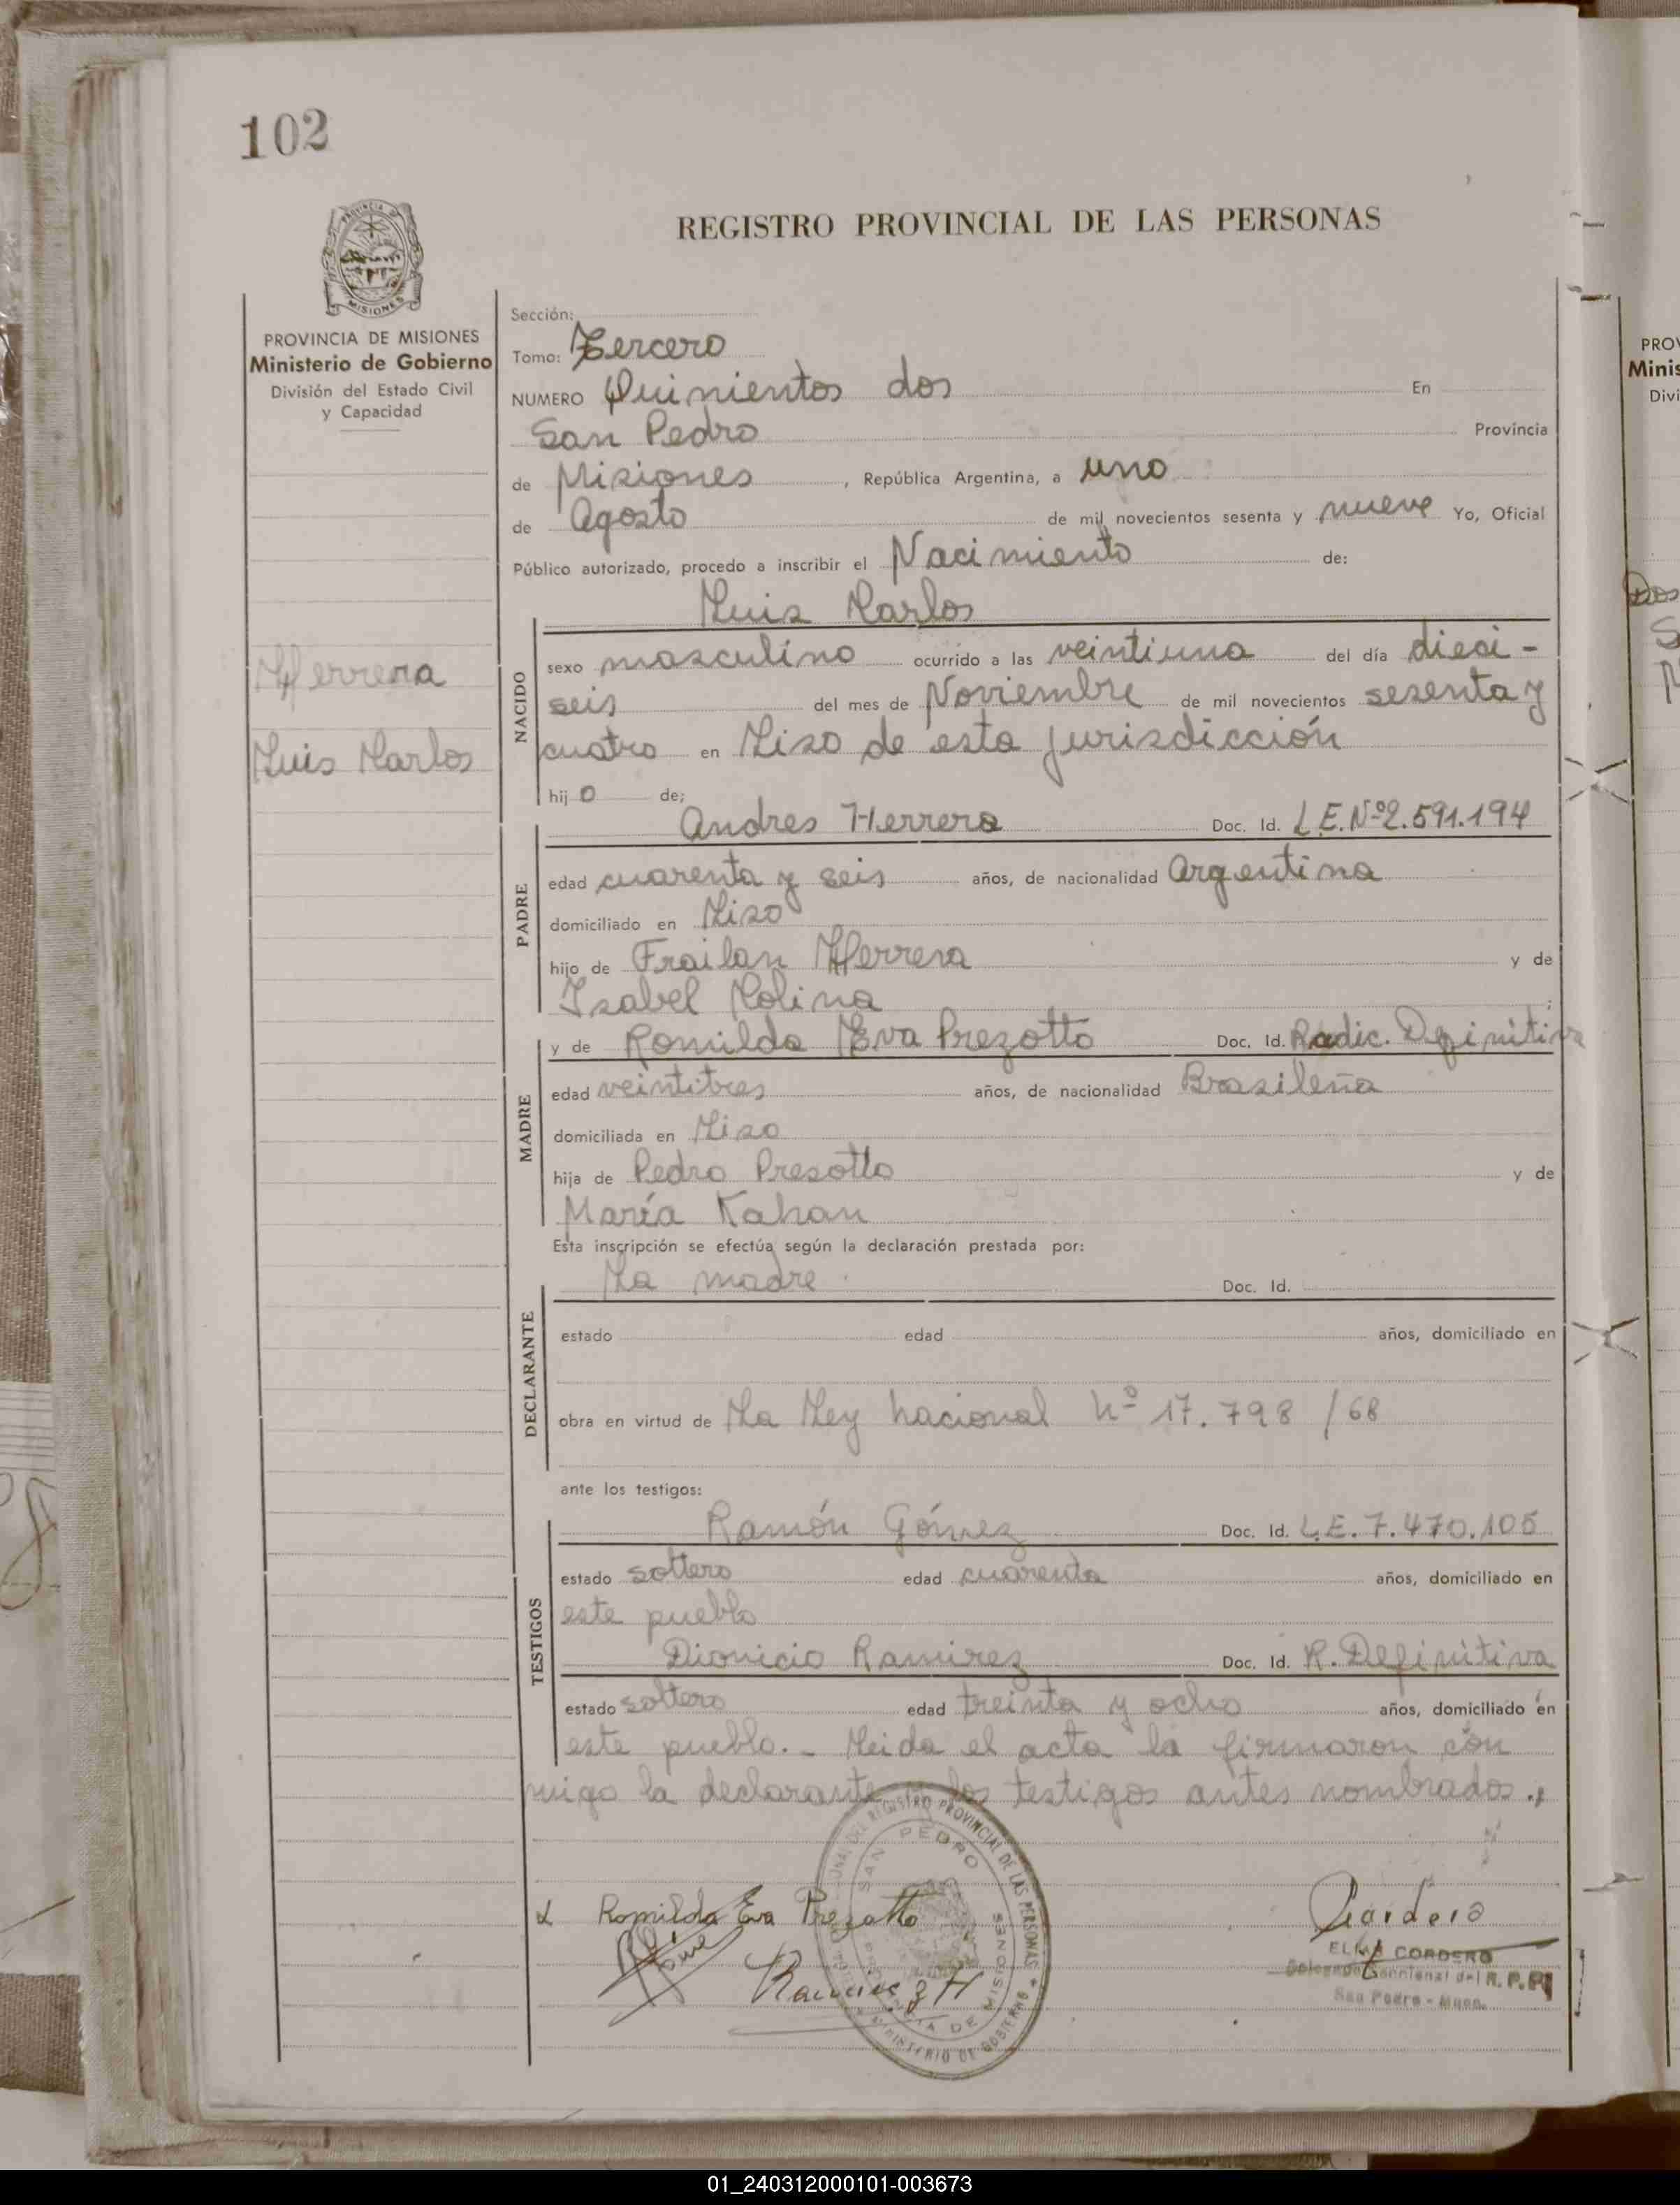 102
REGISTRO PROVINCIAL DE LAS PERSONAS
PROVINCIA DE MISIONES
Ministerio de Gobierno
División del Estado Civil
y Capacidad
Herrera
Luis Carlos
Sección:
Tomo: Tercero
NUMERO Quinientos dos En
San Pedro Provincia
de Misiones, República Argentina, a uno
de Agosto de mil novecientos sesenta y nueve Yo, Oficial
Público autorizado, procedo a inscribir el Nacimiento de:
Luis Carlos
NACIDO
sexo masculino ocurrido a las veintiuna del día dieci-
seis del mes de Noviembre de mil novecientos sesenta y
cuatro en Liso de esta jurisdicción
hijo de;
PADRE
Andres Herrera Doc. Id. L.E.Nº2.591.194
edad cuarenta y seis años, de nacionalidad Argentina
domiciliado en Liso
hijo de Frailan Herrera y de
Isabel Colina
MADRE
y de Romilda Eva Prezotto Doc. Id. Radic. Definitiva
edad veintitres años, de nacionalidad Brasileña
domiciliada en Liso
hija de Pedro Presotto y de
María Kahan
Esta inscripción se efectúa según la declaración prestada por:
DECLARANTE
La madre Doc. Id.
estado edad años, domiciliado en
obra en virtud de La Ley Nacional Nº 17.798 /68
ante los testigos:
TESTIGOS
Ramón Gómez Doc. Id. L.E. 7.470.105
estado soltero edad cuarenta años, domiciliado en
este pueblo
Dionicio Ramirez Doc. Id. R. Definitiva
estado soltero edad treinta y ocho años, domiciliado en
este pueblo.- Leida el acta la firmaron con
migo la declarante los testigos antes nombrados.
REGISTRO PROVINCIAL DE LAS PERSONAS
SAN PEDRO
MISIONES
MINISTERIO DE GOBIERNO
Romilda Eva Prezotto
Ramirez H
ELIAS CORDERO
Delegado Seccional del R. P. P.
San Pedro - Mnes.
01_240312000101-003673